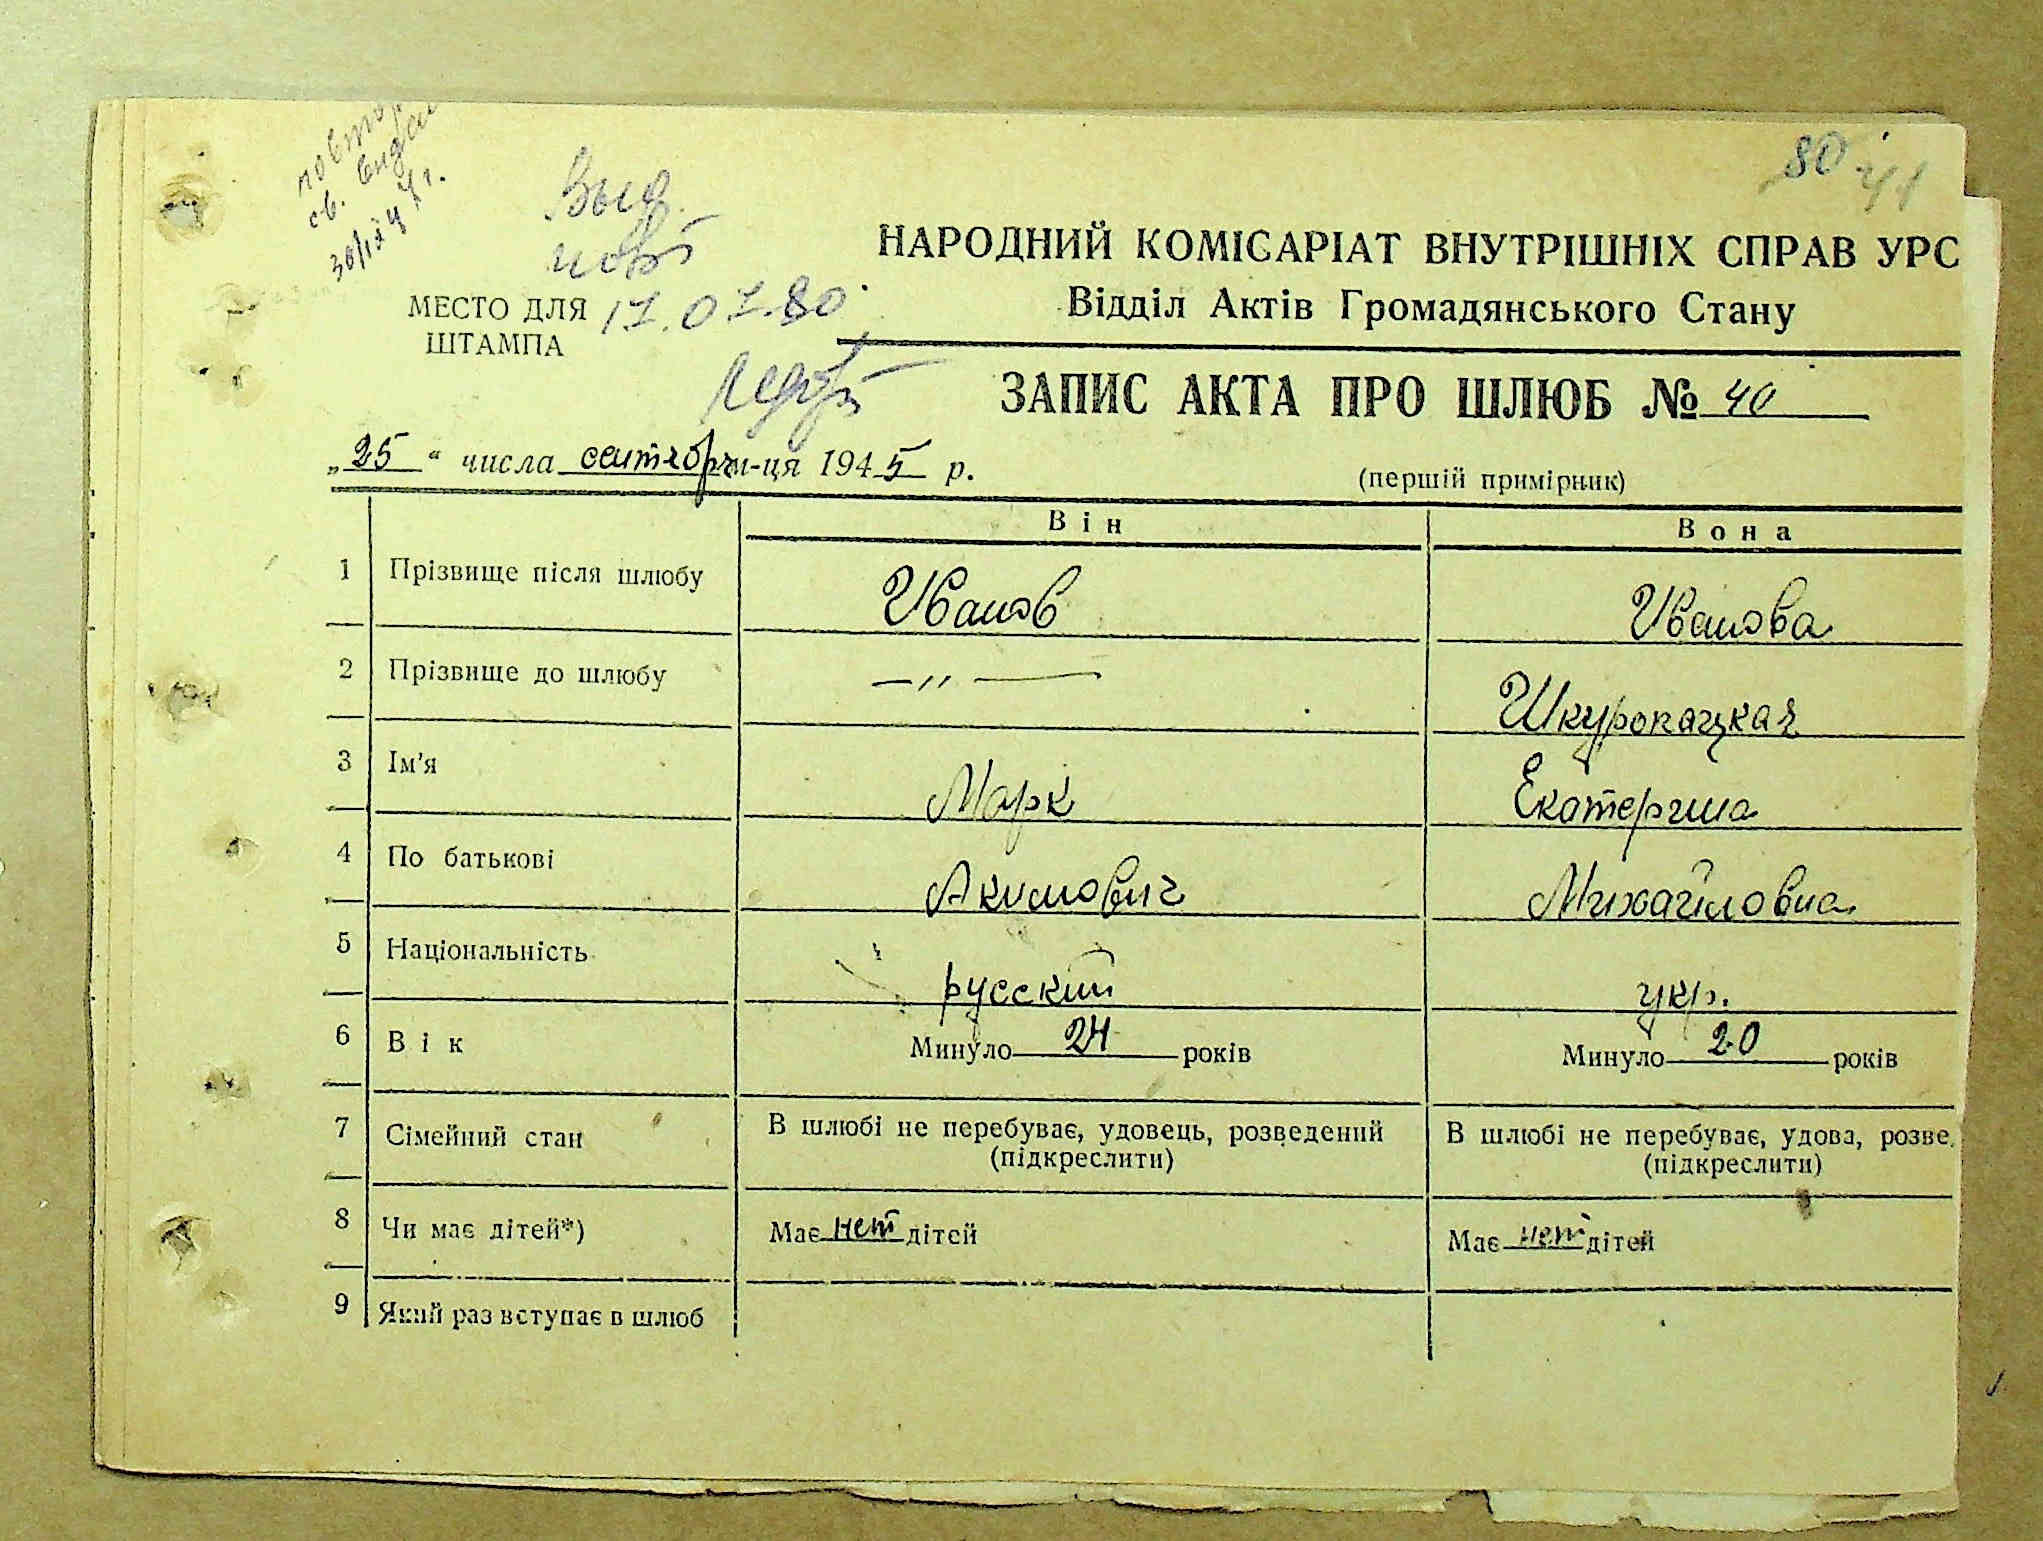 повтор
св. выдан
Выд.
80
НАРОДНИЙ КОМІСАРІАТ ВНУТРІШНІХ СПРАВ УРС
Відділ Актів Громадянського Стану
МЕСТО ДЛЯ
ШТАМПА
17.07.80.
ЗАПИС АКТА ПРО ШЛЮБ № 40
„25“ числа сентября м-ця 1945 р.
(перший примірник)
Він Вона
1 Прізвище після шлюбу Иванов Иванова
2 Прізвище до шлюбу —〃— Шкуропацкая
3 Ім'я Марк Екатерина
4 По батькові Акимович Михайловна
5 Національність русский укр.
6 Вік Минуло 24 років Минуло 20 років
7 Сімейний стан В шлюбі не перебуває, удовець, розведений В шлюбі не перебуває, удова, розве
(підкреслити) (підкреслити)
8 Чи має дітей*) Має нет дітей Має нет дітей
9 Який раз вступає в шлюб